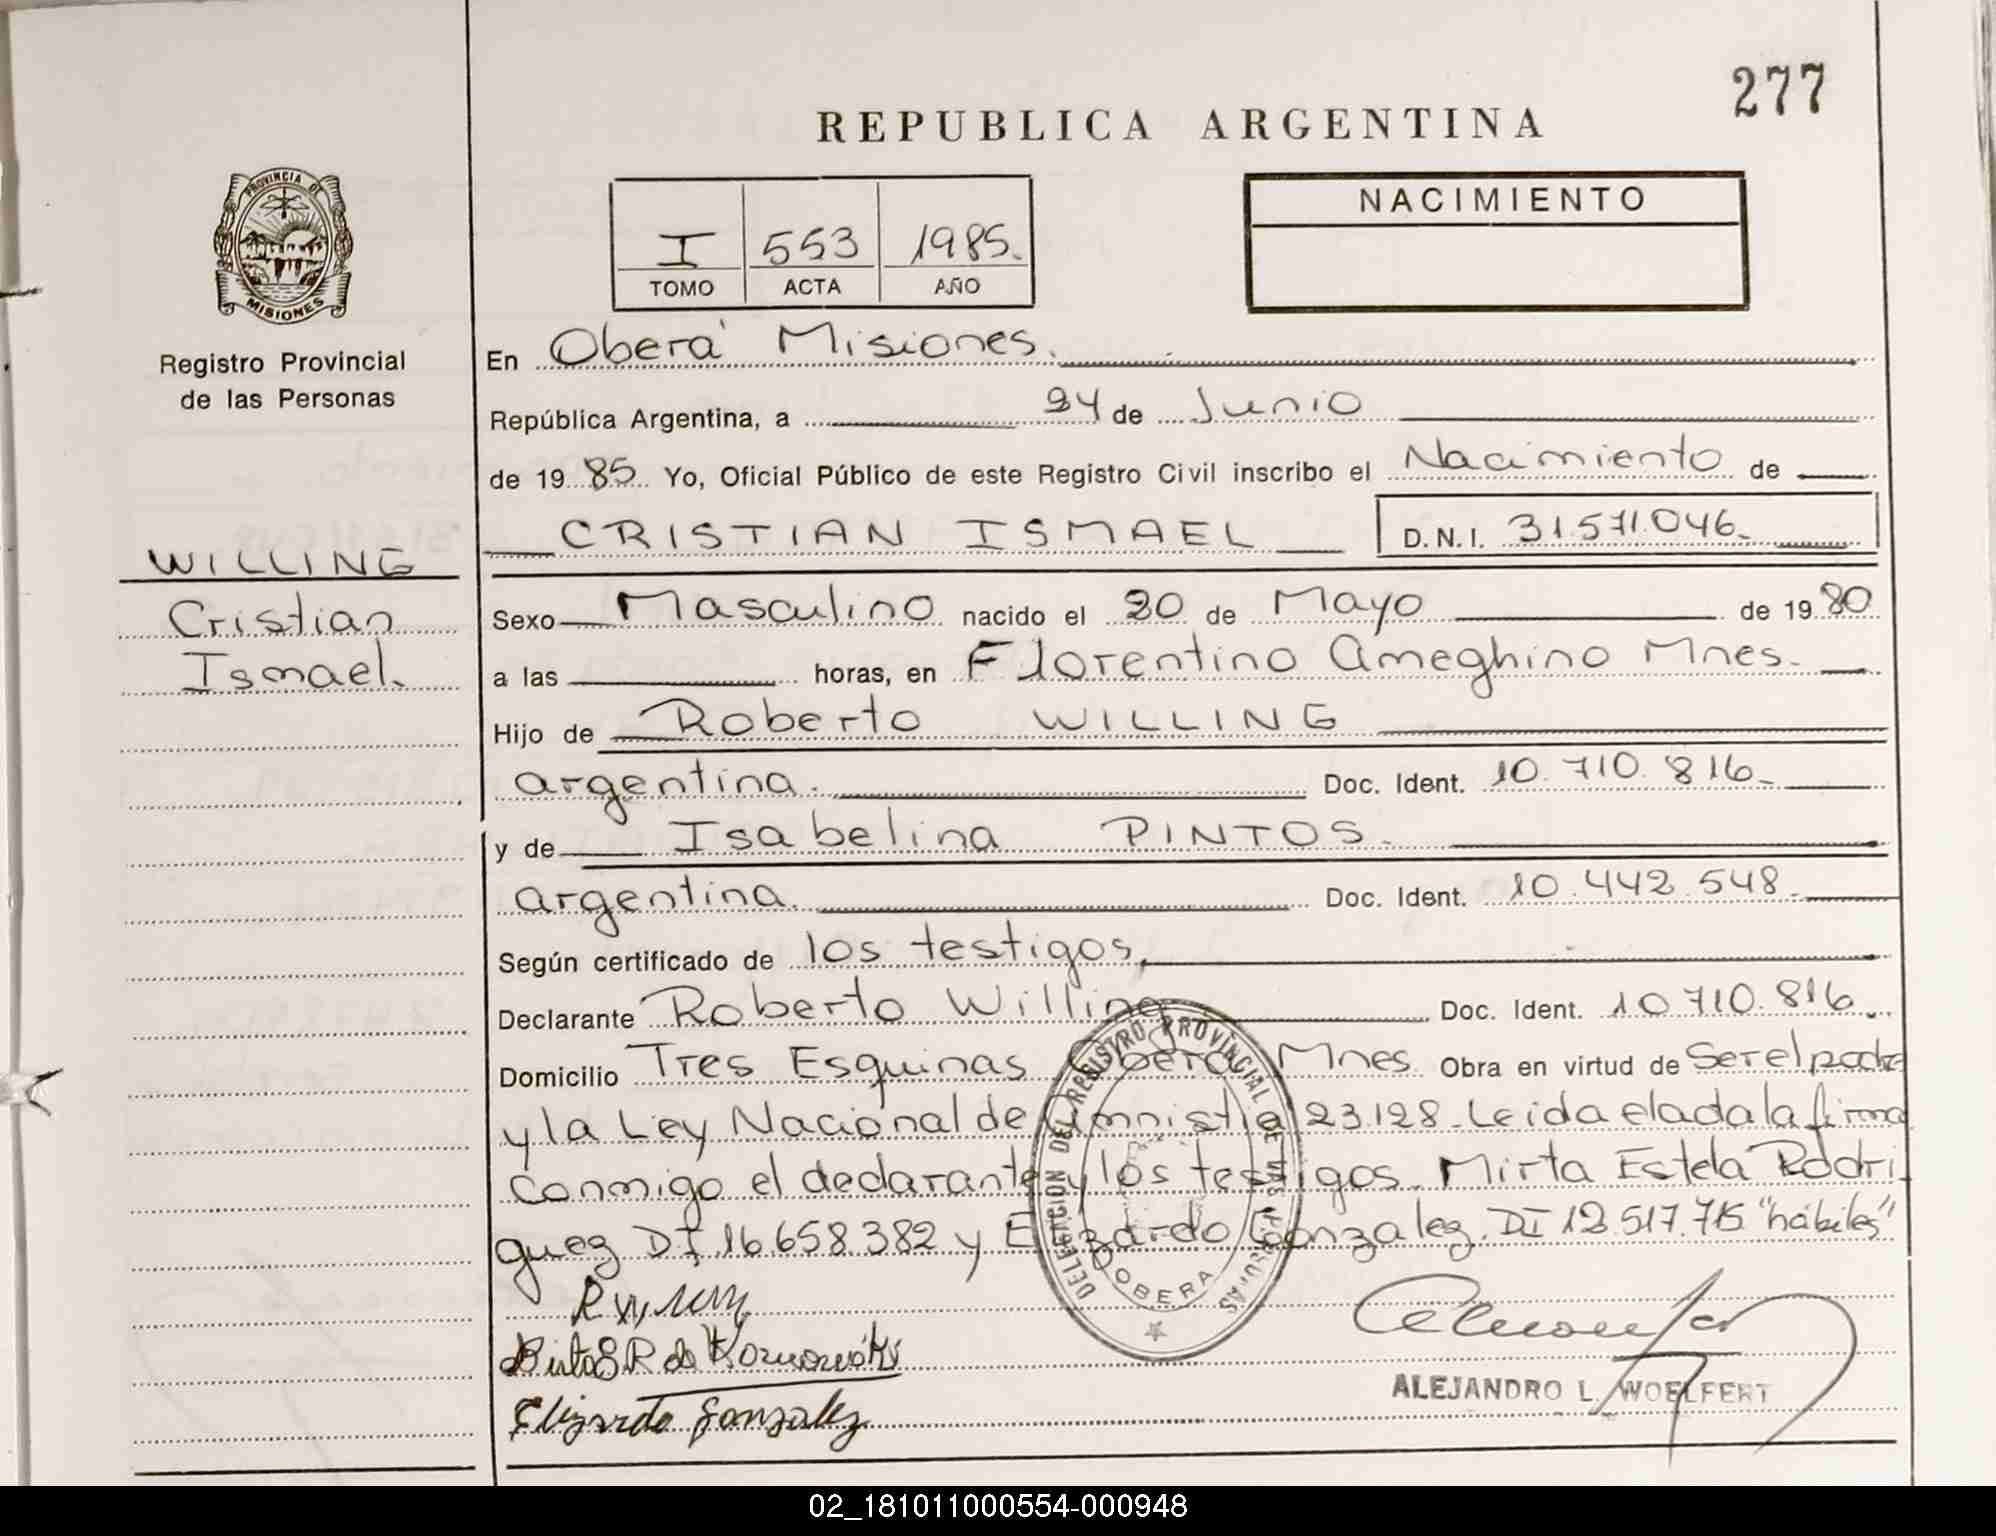 277
REPUBLICA ARGENTINA
PROVINCIA DE
MISIONES
Registro Provincial
de las Personas
I 553 1985.
TOMO ACTA AÑO
NACIMIENTO
En Oberá Misiones.
República Argentina, a 24 de Junio
de 19 85 Yo, Oficial Público de este Registro Civil inscribo el Nacimiento de
CRISTIAN ISMAEL D.N.I. 31.571.046.
WILLING
Cristian
Ismael.
Sexo Masculino nacido el 20 de Mayo de 19 80
a las horas, en Florentino Ameghino Mnes.
Hijo de Roberto WILLING
argentina. Doc. Ident. 10.710.816.
y de Isabelina PINTOS.
argentina. Doc. Ident. 10.442.548.
Según certificado de los testigos,
Declarante Roberto Willing Doc. Ident. 10.710.816.
Domicilio Tres Esquinas Oberá Mnes. Obra en virtud de Ser el padre
y la Ley Nacional de Amnistia 23.128. Leida el acta la firma
conmigo el declarante y los testigos. Mirta Estela Rodri
guez DI 16.658.382 y Elizardo Gonzalez. DI 12.517.715 "hábiles"
DELEGACION DEL REGISTRO PROVINCIAL DE LAS PERSONAS
OBERA
Elizardo Gonzalez
ALEJANDRO L. WOELFERT
02_181011000554-000948